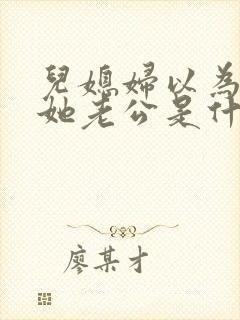 兒媳婦以為
她老公是什
廖某才